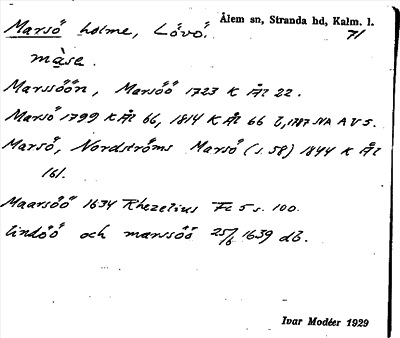 Marsö holme, Lövö. Ålem sn, Stranda hd, Kalm. l.
71
màse.
Marssöön, Marsöö 1723 K Ål 22.
Marsö 1799 K Ål 66, 1814 K Ål 66 b, 1787 NA A V 5.
Marsö, Nordströms Marsö (s. 58) 1844 K Ål
161.
Maarsöö 1634 Rhezelius Fc 5 s. 100.
lindöö och marssöö 25/6 1639 db.
Ivar Modéer 1929